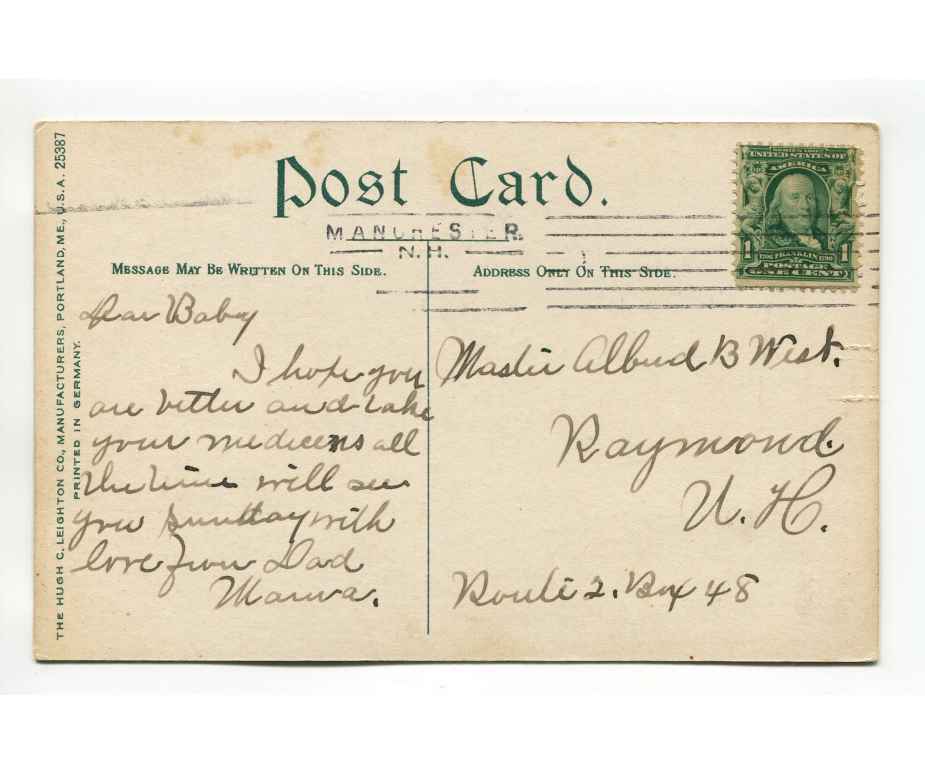 THE HUGH C. LEIGHTON CO., MANUFACTURERS, PORTLAND, ME., U.S.A. 25387
PRINTED IN GERMANY.
Post Card.
MANCHESTER.
N.H.
MESSAGE MAY BE WRITTEN ON THIS SIDE.
ADDRESS ONLY ON THIS SIDE.
SERIES 1902
UNITED STATES OF
AMERICA
1 FRANKLIN 1
POSTAGE
ONE CENT
Dear Baby
I hope you
are better and take
your medicens all
the time will see
you Sunday with
love from Dad
Mama.
Master B West.
Raymond.
N. H.
Route 2. Box 48